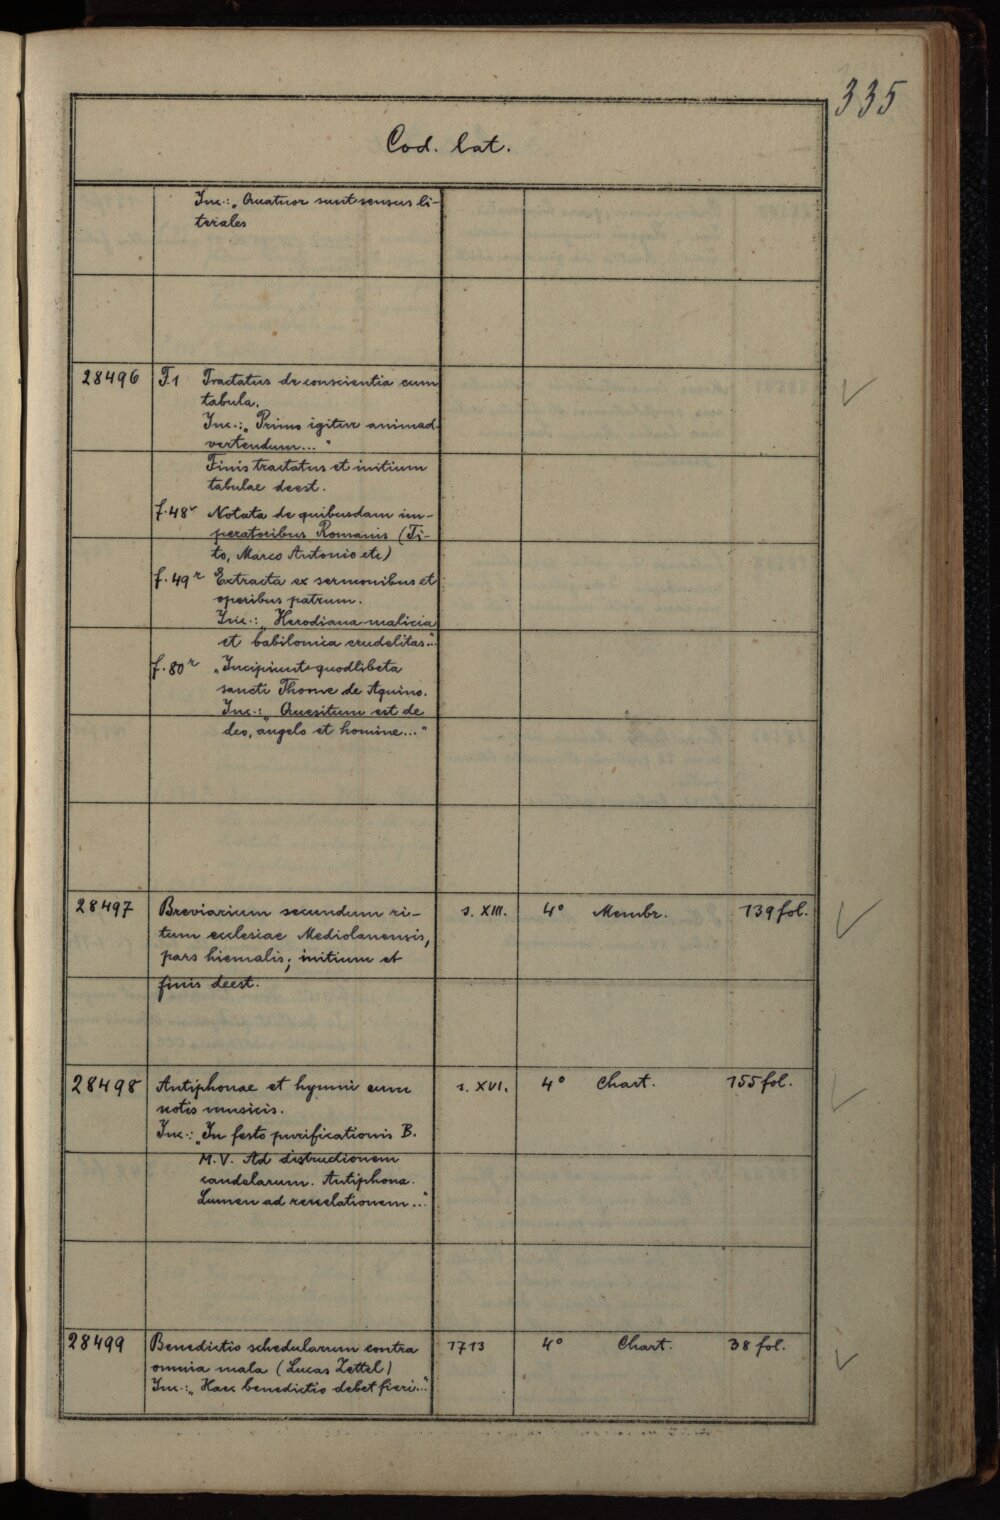 335
Cod. lat.
Inc.: „Quatuor sunt sensus li-
terales
28496 F.1 Tractatus de conscientia cum
tabula.
Inc.: „Primo igitur animad-
vertendum..."
Finis tractatus et initium
tabulae deest.
f. 48v Notata de quibusdam im-
peratoribus Romanis (Ti-
to, Marco Antonio etc)
f. 49r Extracta ex sermonibus et
operibus patrum.
Inc.: „Herodiana malicia
et babilonica crudelitas..."
f. 80r „Incipiunt quodlibeta
sancti Thome de Aquino.
Inc.: „Quesitum est de
deo, angelo et homine..."
28497 Breviarium secundum ri- s. XIII. 4° Membr. 139 fol.
tum ecclesiae Mediolanensis,
pars hiemalis; initium et
finis deest.
28498 Antiphonae et hymni cum s. XVI. 4° Chart. 155 fol.
notis musicis.
Inc.: „In festo purificationis B.
M. V. Ad distructionem
candelarum. Antiphona.
Lumen ad revelationem..."
28499 Benedictio schedularum contra 1713 4° Chart. 38 fol.
omnia mala (Lucas Zettel)
Inc.: „Haec benedictio debet fieri..."